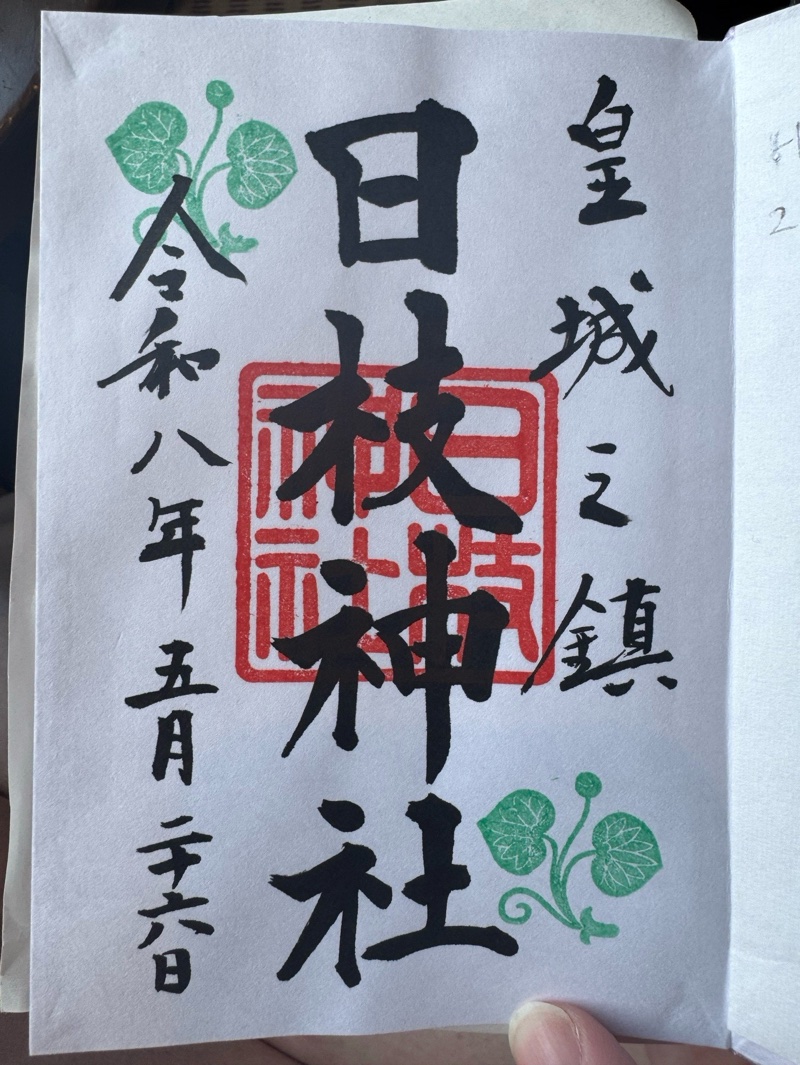 皇城之鎮
日枝神社
日枝神社
令和八年五月二十六日
2